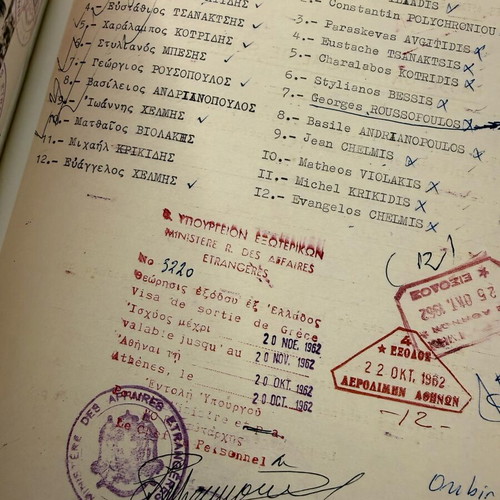 4.- Εὐστάθιος ΤΣΑΝΑΚΤΣΗΣ
5.- Χαράλαμπος ΚΟΤΡΙΔΗΣ
6.- Στυλιανός ΜΠΕΣΗΣ
7.- Γεώργιος ΡΟΥΣΟΠΟΥΛΟΣ
8.- Βασίλειος ΑΝΔΡΙΑΝΟΠΟΥΛΟΣ
9.- Ἰωάννης ΧΕΛΜΗΣ
Ματθαῖος ΒΙΟΛΑΚΗΣ
11.- Μιχαήλ ΚΡΙΚΙΔΗΣ
12.- Εὐάγγελος ΧΕΛΜΗΣ
Constantin POLYCHRONIOU
3.- Paraskevas AVGITIDIS
4.- Eustache TSANAKTSIS
5.- Charalabos KOTRIDIS
6.- Stylianos BESSIS
7.- Georges ROUSSOPOULOS
8.- Basile ANDRIANOPOULOS
9.- Jean CHELMIS
10.- Matheos VIOLAKIS
11.- Michel KRIKIDIS
12.- Evangelos CHELMIS
(12)
ΥΠΟΥΡΓΕΙΟΝ ΕΞΩΤΕΡΙΚΩΝ
MINISTERE R. DES AFFAIRES
ETRANGERES
No 5220
Θεώρησις ἐξόδου ἐξ Ἑλλάδος
Visa de sortie de Grèce
Ἰσχύος μέχρι 20 ΝΟΕ. 1962
Valable jusqu'au 20 NOV. 1962
Ἀθῆναι τῇ 20 ΟΚΤ. 1962
Athènes, le 20 OCT. 1962
Ἐντολῇ Ὑπουργοῦ
Personnel
ΕΙΣΟΔΟΣ
25 ΟΚΤ. 1962
4
ΕΞΟΔΟΣ
22 ΟΚΤ. 1962
ΑΕΡΟΛΙΜΗΝ ΑΘΗΝΩΝ
-12-
MINISTERE DES AFFAIRES ETRANGERES